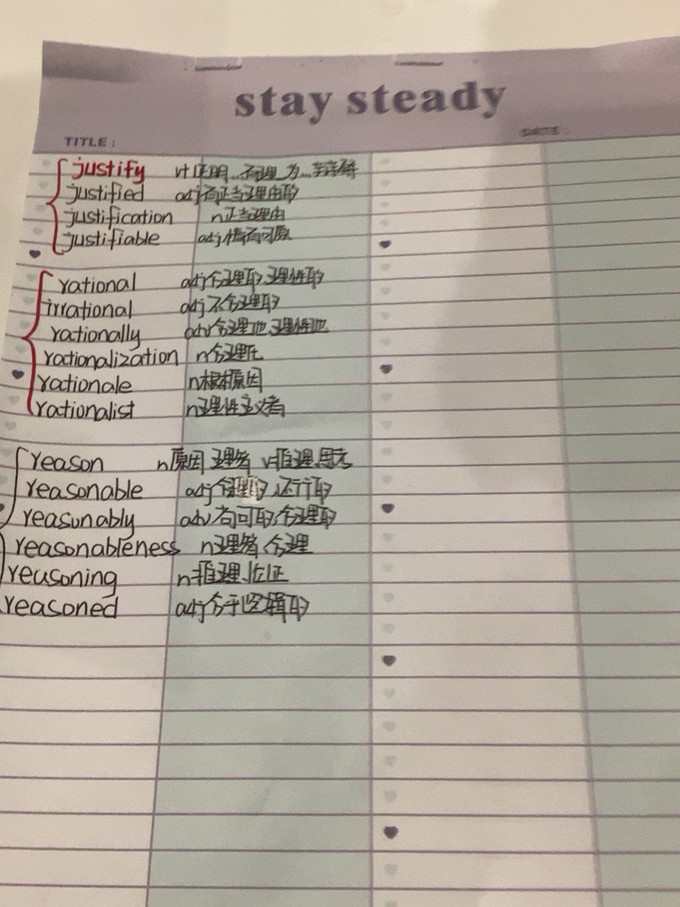 stay steady
TITLE: DATE:
justify vt证明…有理 为…辩解
justified adj有正当理由的
justification n正当理由
justifiable adj情有可原
rational adj合理的,理性的
irrational adj不合理的
rationally adv合理地,理性地
rationalization n合理化
rationale n根本原因
rationalist n理性主义者
reason n原因 理智 v推理 思考
reasonable adj合理的,还行的
reasonably adv 合理的
reasonableness n理智,合理
reasoning n推理,论证
reasoned adj合乎逻辑的